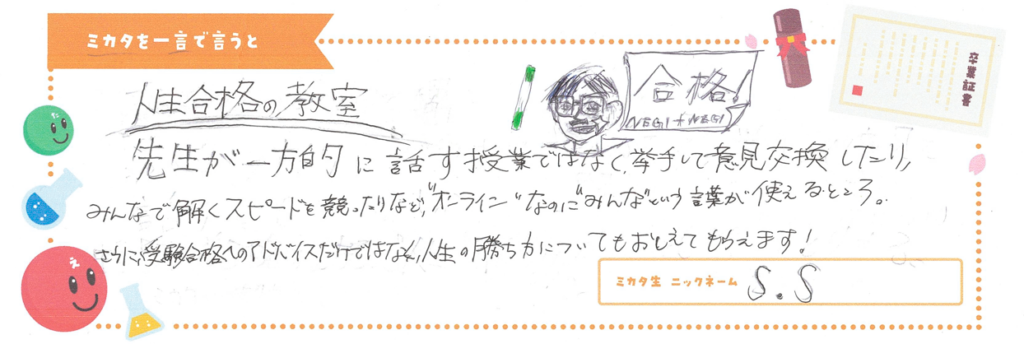 ミカタを一言で言うと
卒業証書
人生合格の教室
合格!
NEGI+NEGI
先生が一方的に話す授業ではなく、挙手して意見交換したり、
みんなで解くスピードを競ったりなど、"オンライン"なのに"みんな"という言葉が使えるところ。
さらに、受験合格へのアドバイスだけではなく、人生の勝ち方についてもおしえてもらえます!
え
ミカタ生 ニックネーム
S.S